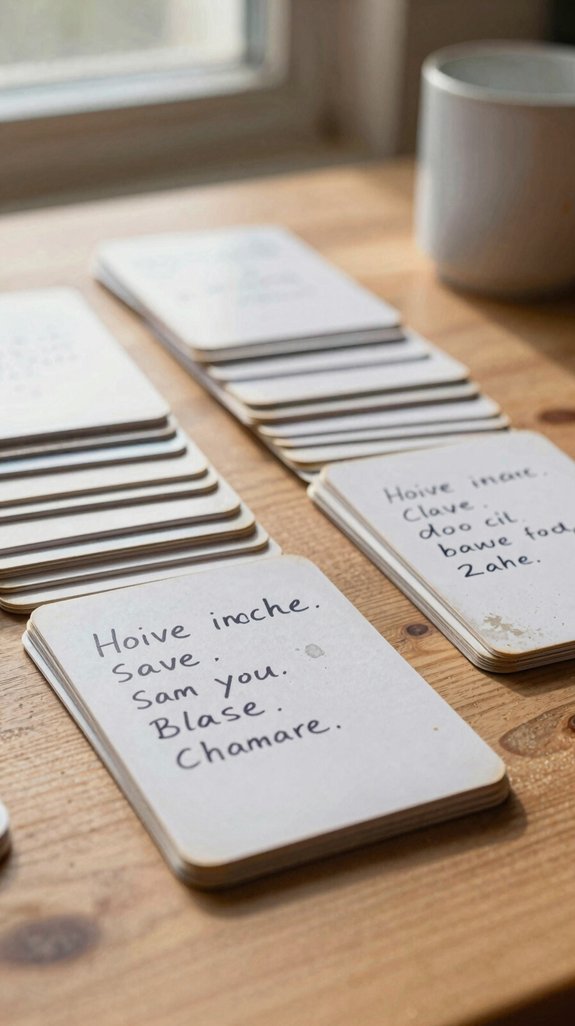 Hoive inoche.
Save.
Sam you.
Blase.
Chamare.
Hoive
Clave.
doo cil.
bawe fod,
Zahe.